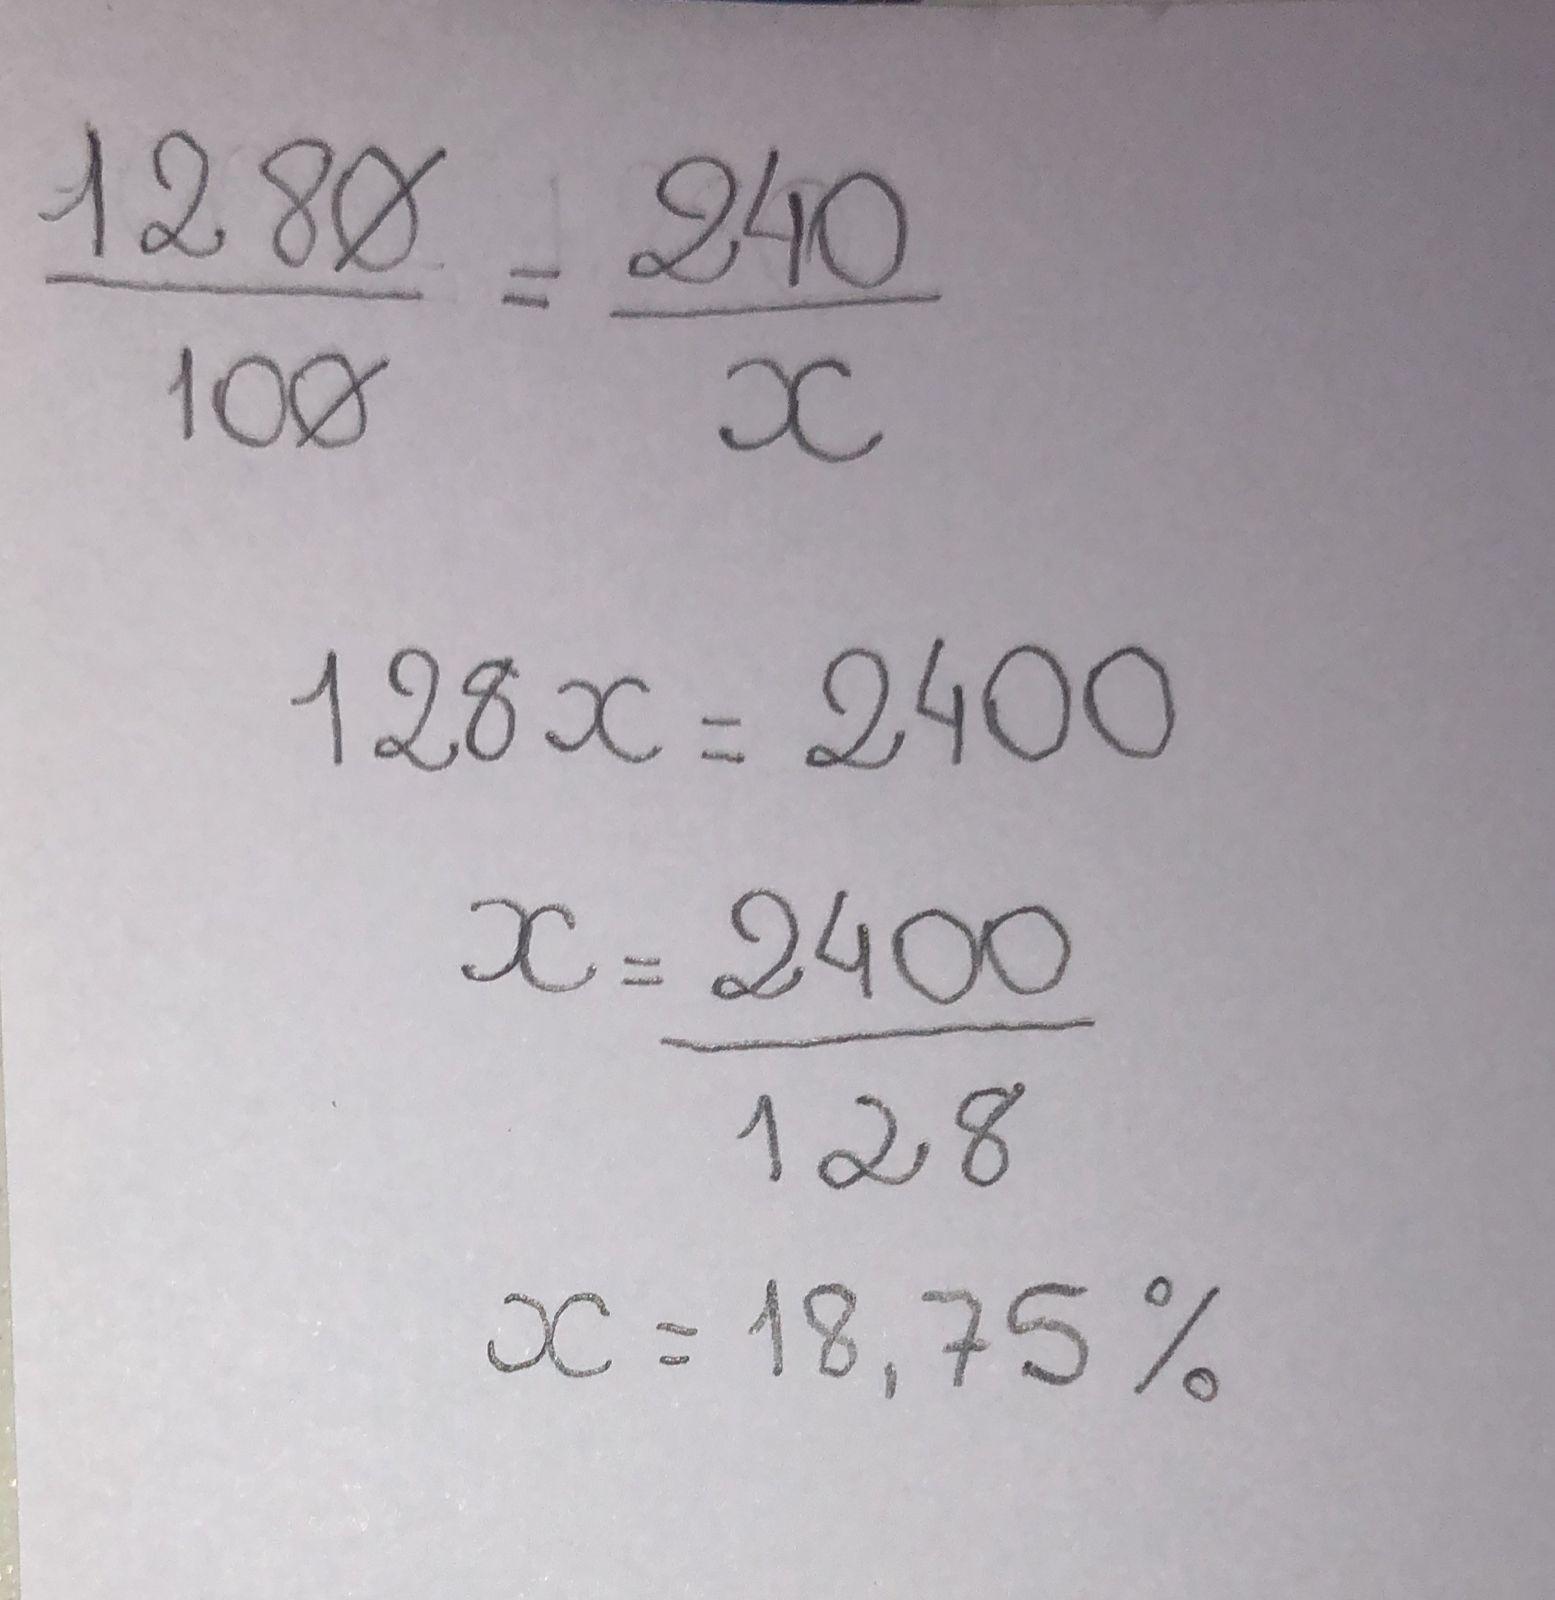 1280 = 240
100 x
128x = 2400
x = 2400
128
x = 18,75%